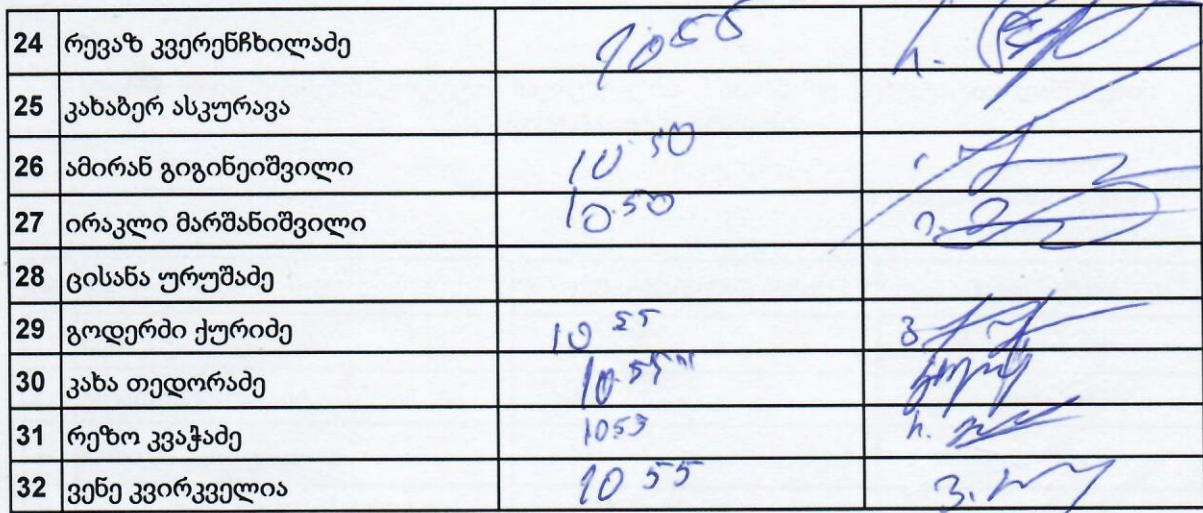 24 რევაზ კვერენჩხილაძე 10 55
25 კახაბერ ასკურავა
26 ამირან გიგინეიშვილი 10 50
27 ირაკლი მარშანიშვილი 10 50
28 ცისანა ურუშაძე
29 გოდერძი ქურიძე 10 55
30 კახა თედორაძე 10 55
31 რეზო კვაჭაძე 1053
32 ვენე კვირკველია 10 55